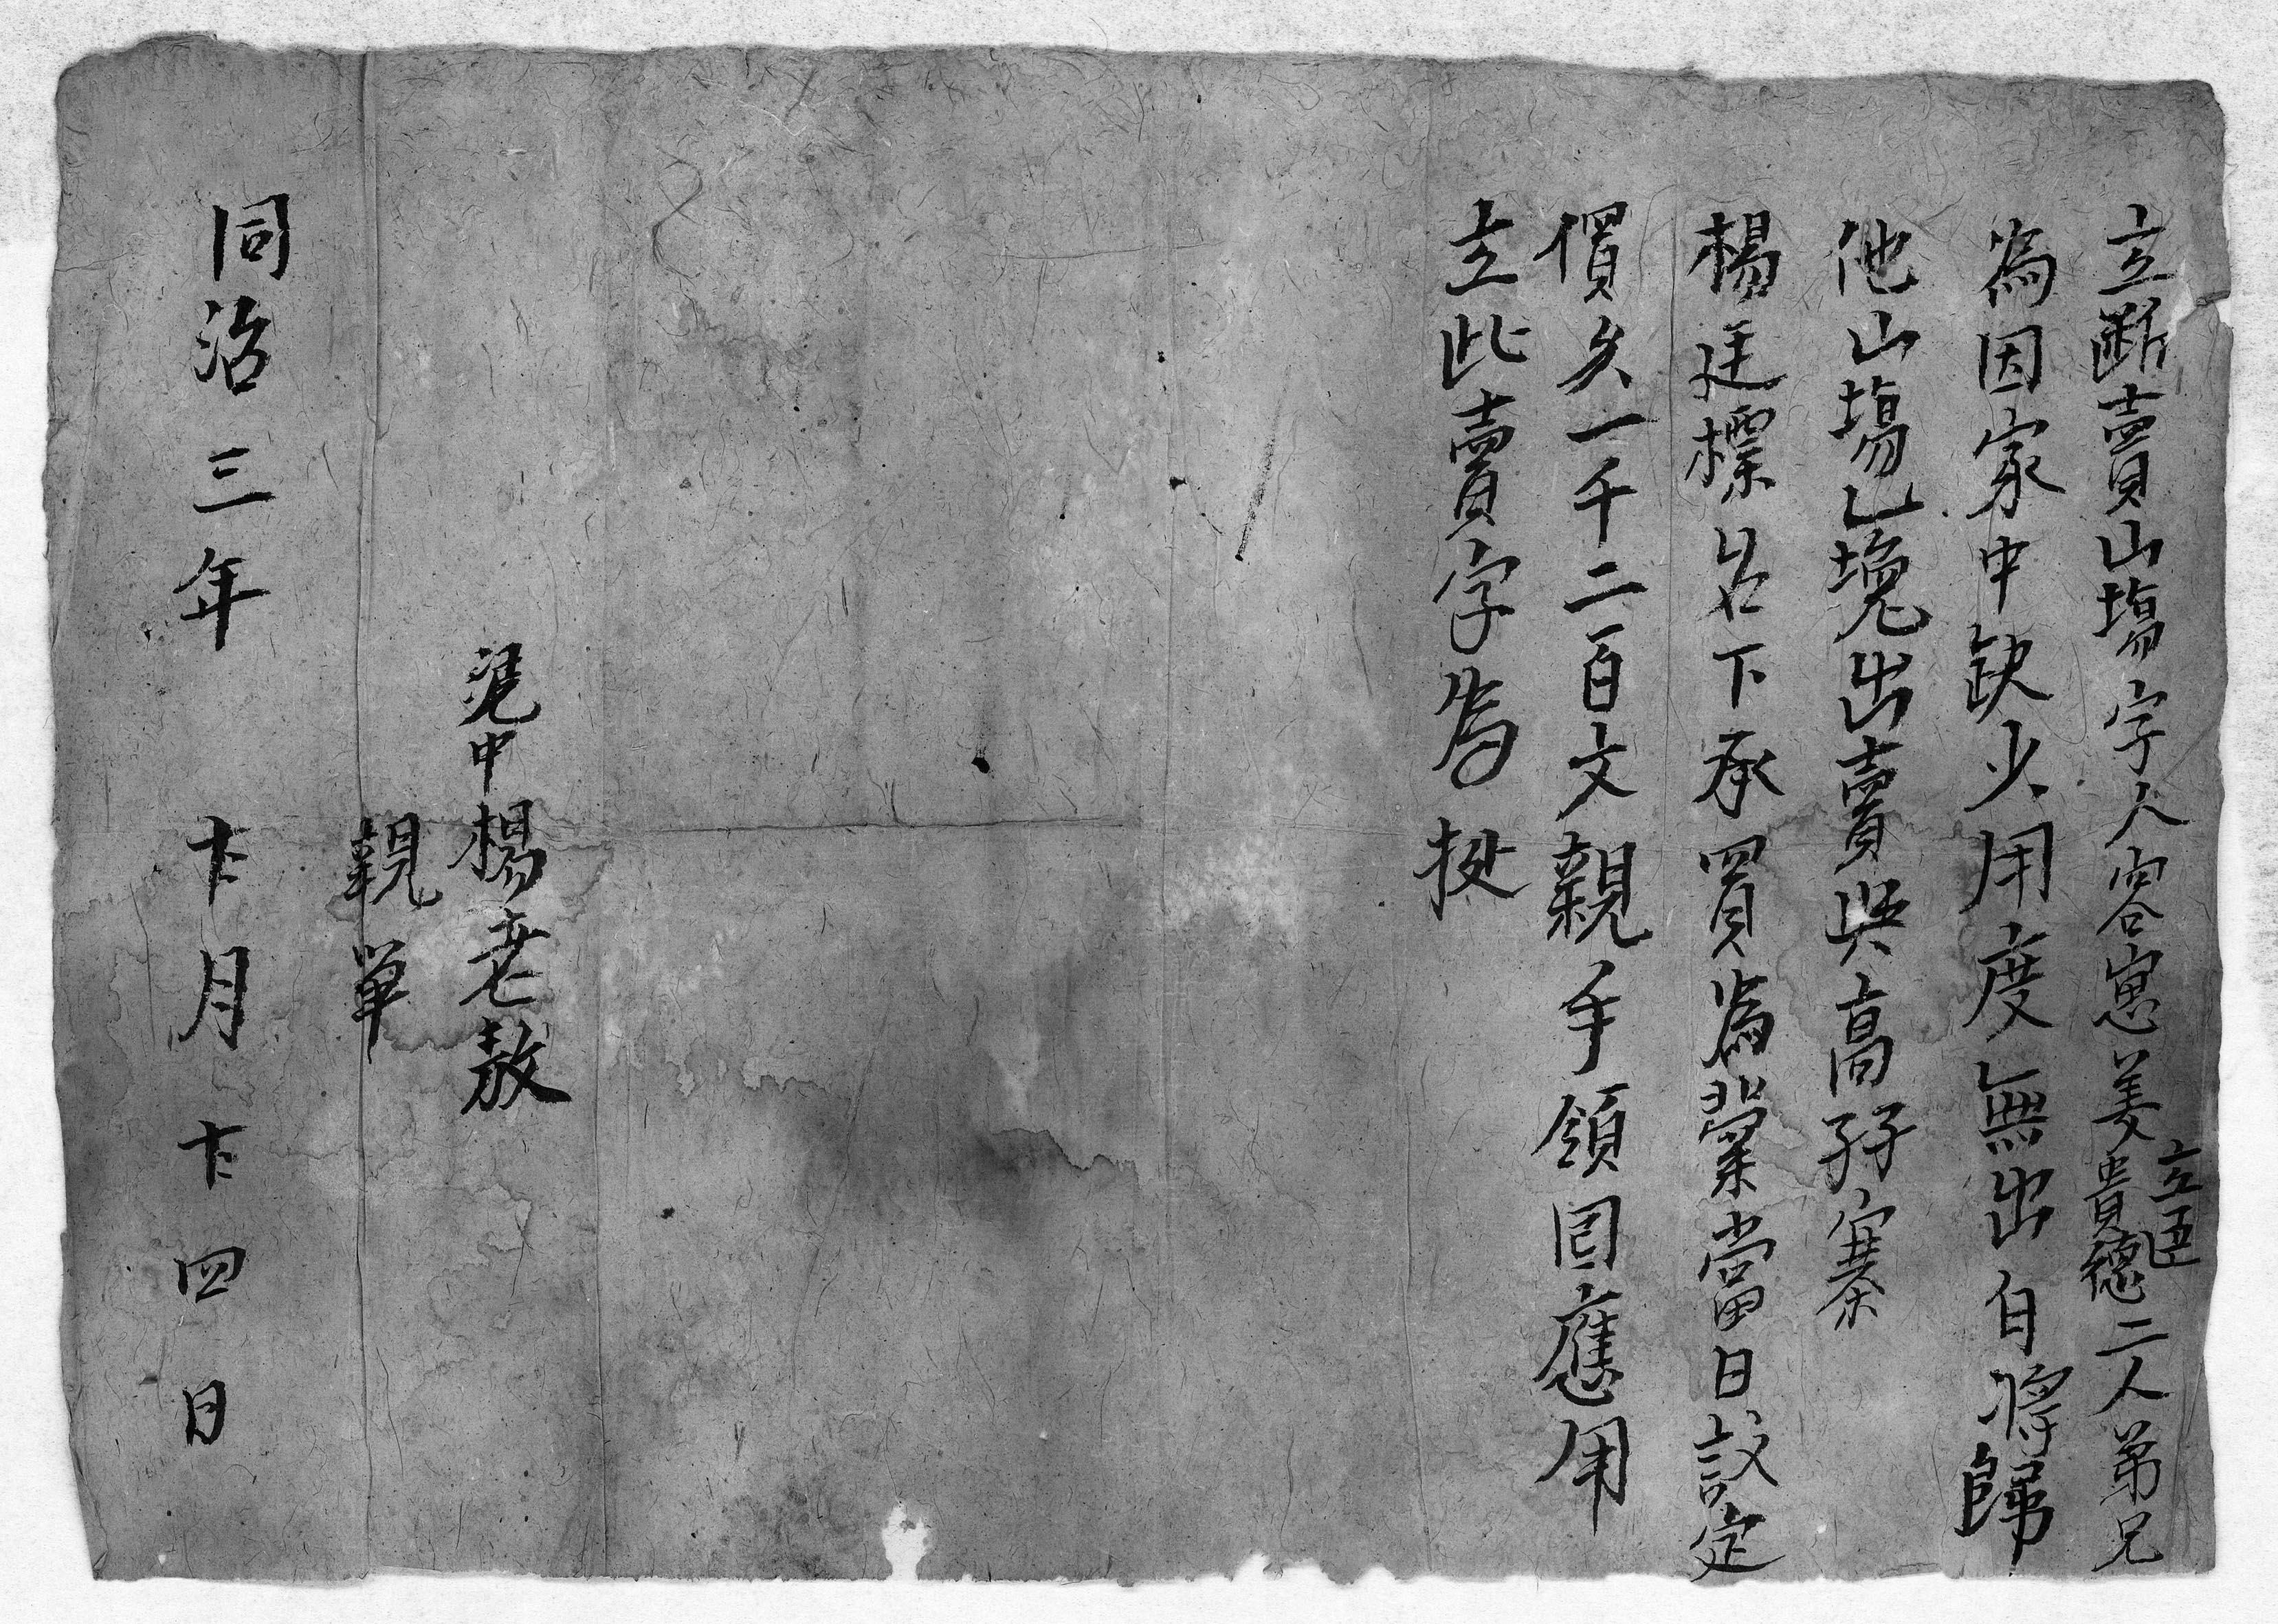 立斷賣山塲字人容嵬姜立臣貴德二人弟兄
為因家中缺少用度無出自將歸
他山塲乙塊出賣與高孖寨
楊廷標名下承買為業當日議定
價矢一千二百文親手領回應用
立此賣字為㨿
憑中楊老敖
親筆
同治三年七月十四日